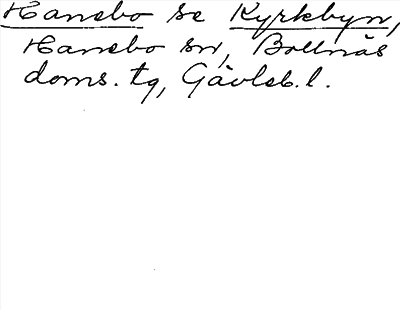 Hanebo se Kyrkbyn,
Hanebo sn, Bollnäs
doms. tg, Gävleb. l.